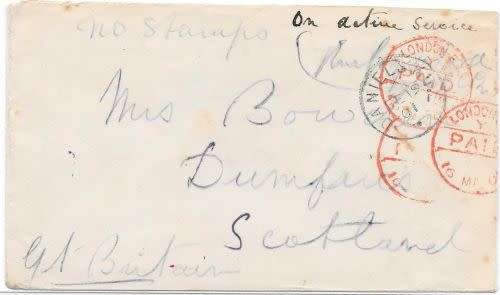 On active Service
No Stamps
LONDON
PAID
DANIEL
LONDON
PAI
Mrs Bow
Dumfries
Scotland
Gt Britain